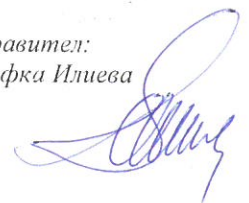 равител:
фка Илиева